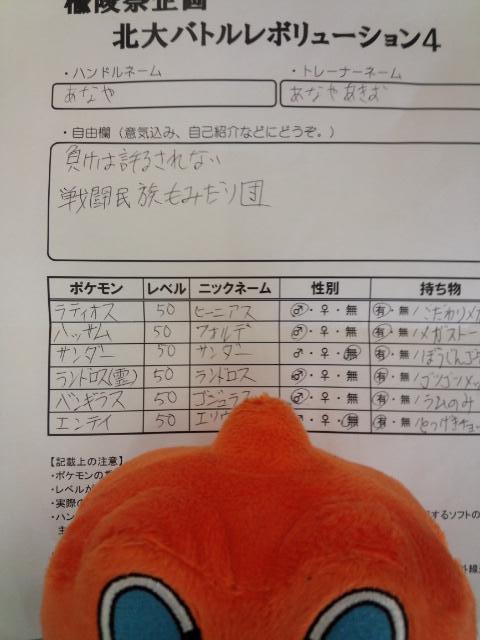 楡陵祭企画
北大バトルレボリューション4
・ハンドルネーム ・トレーナーネーム
あなや あなやあきお
・自由欄(意気込み、自己紹介などにどうぞ。)
負けは許るされない
戦闘民族もみたり団
ポケモン レベル ニックネーム 性別 持ち物
ラティオス 50 ヒーニアス ♂・♀・無 有・無/こだわりメガ
ハッサム 50 フォルデ ♂・♀・無 有・無/メガストー
サンダー 50 サンダー ♂・♀・無 有・無/ぼうじんゴ
ランドロス(霊) 50 ランドロス ♂・♀・無 有・無/ゴツゴツメッ
バンギラス 50 ゴジュラス ♂・♀・無 有・無/ラムのみ
エンテイ 50 エリウ ♂・♀・無 有・無/とつげきチョ
【記載上の注意】
・ポケモンの
・レベルが
・実際の
・ハン するソフトの
主
外線